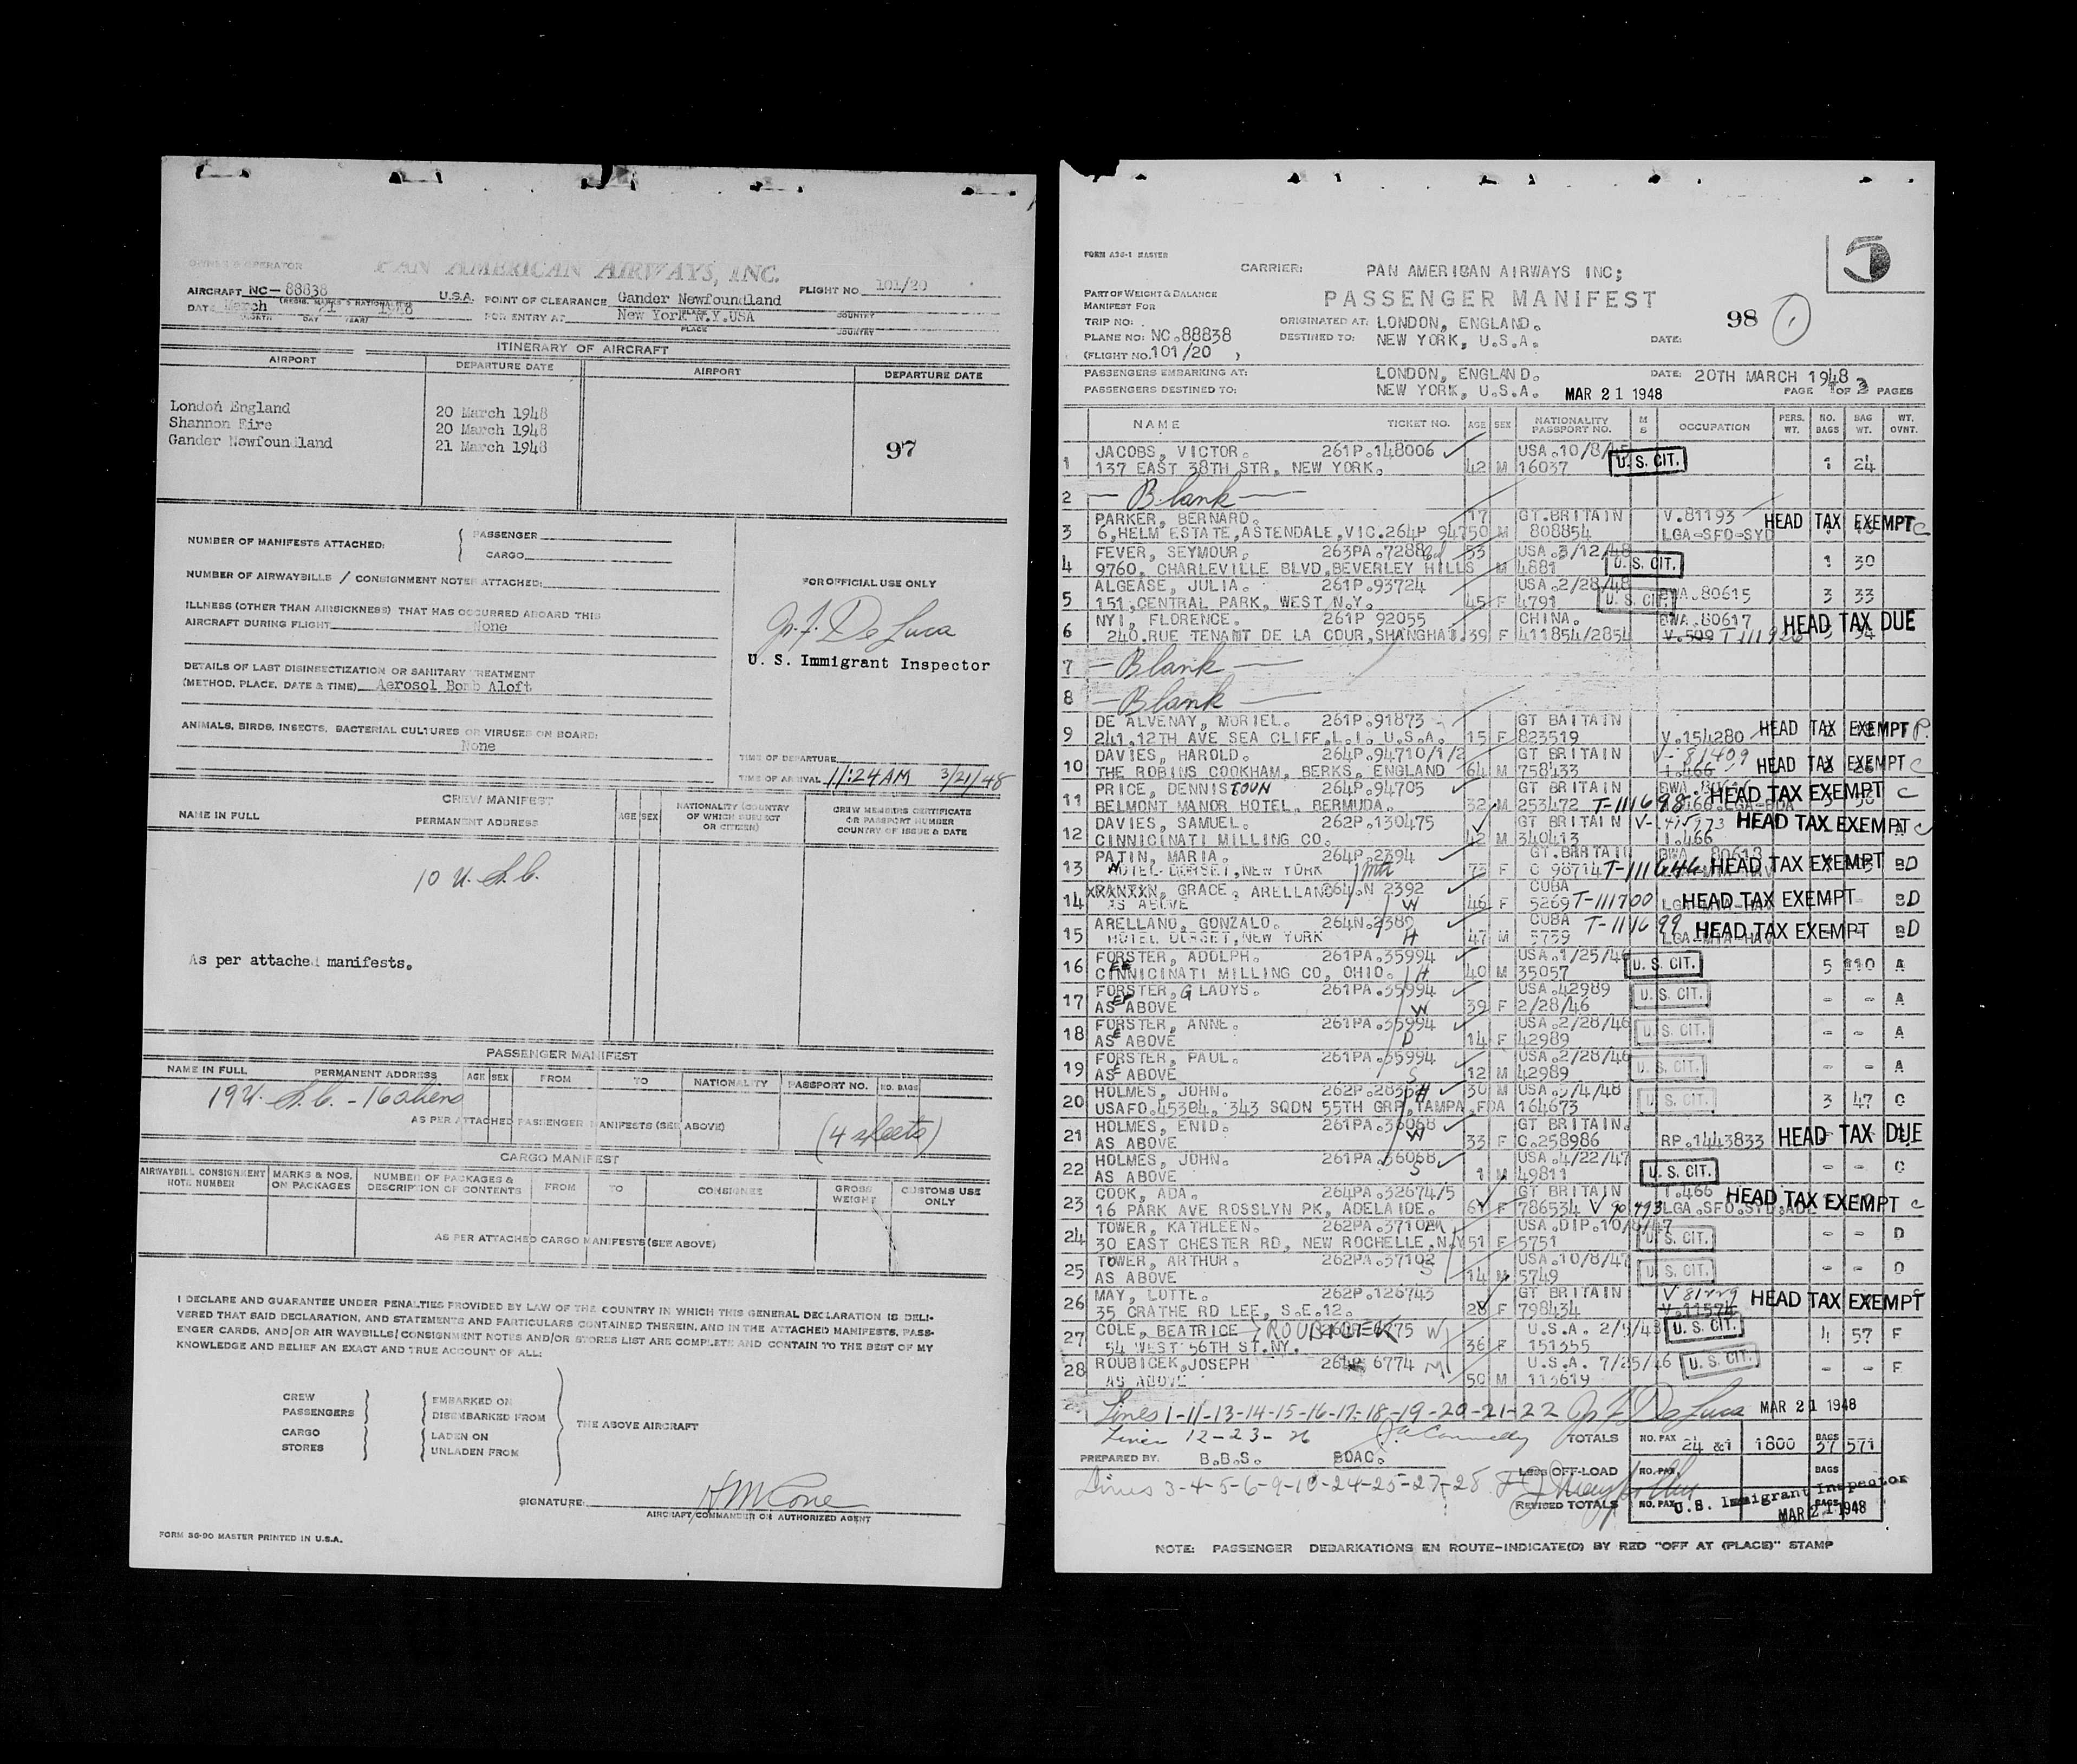 OWNER & OPERATOR PAN AMERICAN AIRWAYS, INC.
AIRCRAFT NC-88838 U.S.A. POINT OF CLEARANCE Gander Newfoundland FLIGHT NO 101/20
(REGIS. MARKS & NATIONALITY) PLACE COUNTRY
DATE March 21 1948 FOR ENTRY AT New York N.Y.USA
MONTH DAY (YEAR) PLACE COUNTRY
ITINERARY OF AIRCRAFT
AIRPORT DEPARTURE DATE AIRPORT DEPARTURE DATE
London England 20 March 1948
Shannon Eire 20 March 1948
Gander Newfoundland 21 March 1948
97
NUMBER OF MANIFESTS ATTACHED: PASSENGER
CARGO
NUMBER OF AIRWAYBILLS / CONSIGNMENT NOTES ATTACHED:
FOR OFFICIAL USE ONLY
ILLNESS (OTHER THAN AIRSICKNESS) THAT HAS OCCURRED ABOARD THIS
AIRCRAFT DURING FLIGHT None
De Luca
U. S. Immigrant Inspector
DETAILS OF LAST DISINSECTIZATION OR SANITARY TREATMENT
(METHOD, PLACE, DATE & TIME) Aerosol Bomb Aloft
ANIMALS, BIRDS, INSECTS, BACTERIAL CULTURES OR VIRUSES ON BOARD:
None
TIME OF DEPARTURE
TIME OF ARRIVAL 11:24 AM 3/21/48
CREW MANIFEST
NAME IN FULL PERMANENT ADDRESS AGE SEX NATIONALITY (COUNTRY OF WHICH SUBJECT OR CITIZEN) CREW MEMBERS CERTIFICATE OR PASSPORT NUMBER COUNTRY OF ISSUE & DATE
10 U.S.C.
As per attached manifests.
PASSENGER MANIFEST
NAME IN FULL PERMANENT ADDRESS AGE SEX FROM TO NATIONALITY PASSPORT NO. NO. BAGS
19 U.S.C. - 16 aliens
AS PER ATTACHED PASSENGER MANIFESTS (SEE ABOVE) (4 sheets)
CARGO MANIFEST
AIRWAYBILL CONSIGNMENT NOTE NUMBER MARKS & NOS. ON PACKAGES NUMBER OF PACKAGES & DESCRIPTION OF CONTENTS FROM TO CONSIGNEE GROSS WEIGHT CUSTOMS USE ONLY
AS PER ATTACHED CARGO MANIFESTS (SEE ABOVE)
I DECLARE AND GUARANTEE UNDER PENALTIES PROVIDED BY LAW OF THE COUNTRY IN WHICH THIS GENERAL DECLARATION IS DELI-
VERED THAT SAID DECLARATION, AND STATEMENTS AND PARTICULARS CONTAINED THEREIN, AND IN THE ATTACHED MANIFESTS, PASS-
ENGER CARDS, AND/OR AIR WAYBILLS/CONSIGNMENT NOTES AND/OR STORES LIST ARE COMPLETE AND CONTAIN TO THE BEST OF MY
KNOWLEDGE AND BELIEF AN EXACT AND TRUE ACCOUNT OF ALL:
CREW EMBARKED ON
PASSENGERS DISEMBARKED FROM
THE ABOVE AIRCRAFT
CARGO LADEN ON
STORES UNLADEN FROM
SIGNATURE:
AIRCRAFT COMMANDER OR AUTHORIZED AGENT
FORM 36-90 MASTER PRINTED IN U.S.A.
FORM A36-1 MASTER
CARRIER: PAN AMERICAN AIRWAYS INC;
PART OF WEIGHT & BALANCE
MANIFEST FOR
PASSENGER MANIFEST
98 1
TRIP NO:
ORIGINATED AT: LONDON, ENGLAND.
PLANE NO: NC.88838 DESTINED TO: NEW YORK, U.S.A. DATE:
(FLIGHT NO. 101/20 )
PASSENGERS EMBARKING AT: LONDON, ENGLAND. DATE: 20TH MARCH 1948
PASSENGERS DESTINED TO: NEW YORK, U.S.A. MAR 21 1948 PAGE 1 OF 3 PAGES
NAME TICKET NO. AGE SEX NATIONALITY PASSPORT NO. M S OCCUPATION PERS. WT. NO. BAGS BAG WT. WT. OVNT.
1 JACOBS, VICTOR. 261P.148006 USA.10/8/45
137 EAST 38TH STR, NEW YORK. 42 M 16037 U.S. CIT. 1 24
2 — Blank —
3 PARKER, BERNARD. 17 GT.BRITAIN V.81193 HEAD TAX EXEMPT C
6,HELM ESTATE,ASTENDALE,VIC.264P 94750 M 808854 LGA-SFO-SYD
4 FEVER, SEYMOUR. 263PA.7288 33 USA.3/12/48
9760, CHARLEVILLE BLVD,BEVERLEY HILLS M 4881 U.S. CIT. 1 30
5 ALGEASE, JULIA. 261P.93724 USA.2/28/48 BWA.80615
151,CENTRAL PARK, WEST N.Y. 45 F 4791 U.S. CIT. 3 33
6 NYI, FLORENCE. 261P 92055 CHINA. BWA.80617 HEAD TAX DUE
240.RUE TENANT DE LA COUR,SHANGHAI. 39 F 411854/2854 V.509
7 — Blank —
8 — Blank —
9 DE ALVENAY, MURIEL. 261P.91873 GT BAITAIN HEAD TAX EXEMPT P.
241.12TH AVE SEA CLIFF,L.I. U.S.A. 15 F 823519 V.154280
10 DAVIES, HAROLD. 264P.94710/1/2 GT BRITAIN V-81409
THE ROBINS COOKHAM, BERKS, ENGLAND 64 M 758433 1.466 HEAD TAX EXEMPT C
11 PRICE, DENNISTOUN 264P.94705 GT BRITAIN HEAD TAX EXEMPT C
BELMONT MANOR HOTEL, BERMUDA. 32 M 253472 T-111698
12 DAVIES, SAMUEL. 262P.130475 GT BRITAIN HEAD TAX EXEMPT C
CINNICINATI MILLING CO. 42 M 340413 1.466
13 PATIN, MARIA. 264P.2394 GT.BRITAIN BWA 80618 HEAD TAX EXEMPT BD
HOTEL DORSET,NEW YORK mtr 73 F C 98714 T-111646
14 GRACE, ARELLANO 264.N 2392 CUBA HEAD TAX EXEMPT BD
AS ABOVE W 46 F 5269 T-111700
15 ARELLANO, GONZALO. 264N.2389 CUBA T-111699 HEAD TAX EXEMPT BD
HOTEL DORSET,NEW YORK H 47 M 5739
16 FORSTER, ADOLPH. 261PA.35994 USA.1/25/46
CINNICINATI MILLING CO, OHIO. H 40 M 35057 U.S. CIT. 5 110 A
17 FORSTER, GLADYS. 261PA.35994 USA.42989
AS ABOVE W 39 F 2/28/46 U.S. CIT. - - A
18 FORSTER, ANNE. 261PA.35994 USA.2/28/46
AS ABOVE D 14 F 42989 U.S. CIT. - - A
19 FORSTER, PAUL. 261PA.35994 USA.2/28/46
AS ABOVE S 12 M 42989 U.S. CIT. - - A
20 HOLMES, JOHN. 262P. H 30 M USA.3/4/48
USAFO.45384, 343 SQDN 55TH GRP,TAMPA,FDA 164673 U.S. CIT. 3 47 C
21 HOLMES, ENID. 261PA.36068 GT BRITAIN.
AS ABOVE W 33 F C.258986 RP.1443833 HEAD TAX DUE
22 HOLMES, JOHN. 261PA.36068 USA.4/22/47
AS ABOVE S 1 M 49811 U.S. CIT. - - C
23 COOK, ADA. 264PA.32674/5 GT BRITAIN 1.466 HEAD TAX EXEMPT C
16 PARK AVE ROSSLYN PK, ADELAIDE. F 786534 V 90493
24 TOWER, KATHLEEN. 262PA.37102 USA.DIP.10/8/47
30 EAST CHESTER RD, NEW ROCHELLE,N.Y 51 F 5751 U.S. CIT. - - D
25 TOWER, ARTHUR. 262PA.37102 USA.10/8/47
AS ABOVE S 14 M 5749 U.S. CIT. - - D
26 MAY, LOTTE. 262P.126743 GT BRITAIN HEAD TAX EXEMPT
35 CRATHE RD LEE, S.E.12. 28 F 798434 V.11574
27 COLE, BEATRICE ROUBICEK W U.S.A. 2/5/48 U.S. CIT. 4 57 F
54 WEST 56TH ST.NY. 36 F 151355
28 ROUBICEK,JOSEPH 264P 6774 M U.S.A. 7/25/46 U.S. CIT. - - F
AS ABOVE 50 M 113619
Lines 1-11-13-14-15-16-17-18-19-20-21-22 De Luca MAR 21 1948
Lines 12-23-26 Connelly TOTALS NO. PAX 24 &1 1800 BAGS 37 571
PREPARED BY. B.B.S. BOAC.
LESS OFF-LOAD NO. PAX. BAGS
Lines 3-4-5-6-9-10-24-25-27-28
REVISED TOTALS NO. PAX BAGS
U.S. Immigrant Inspector
MAR 21 1948
NOTE: PASSENGER DEBARKATIONS EN ROUTE-INDICATE(D) BY RED "OFF AT (PLACE)" STAMP